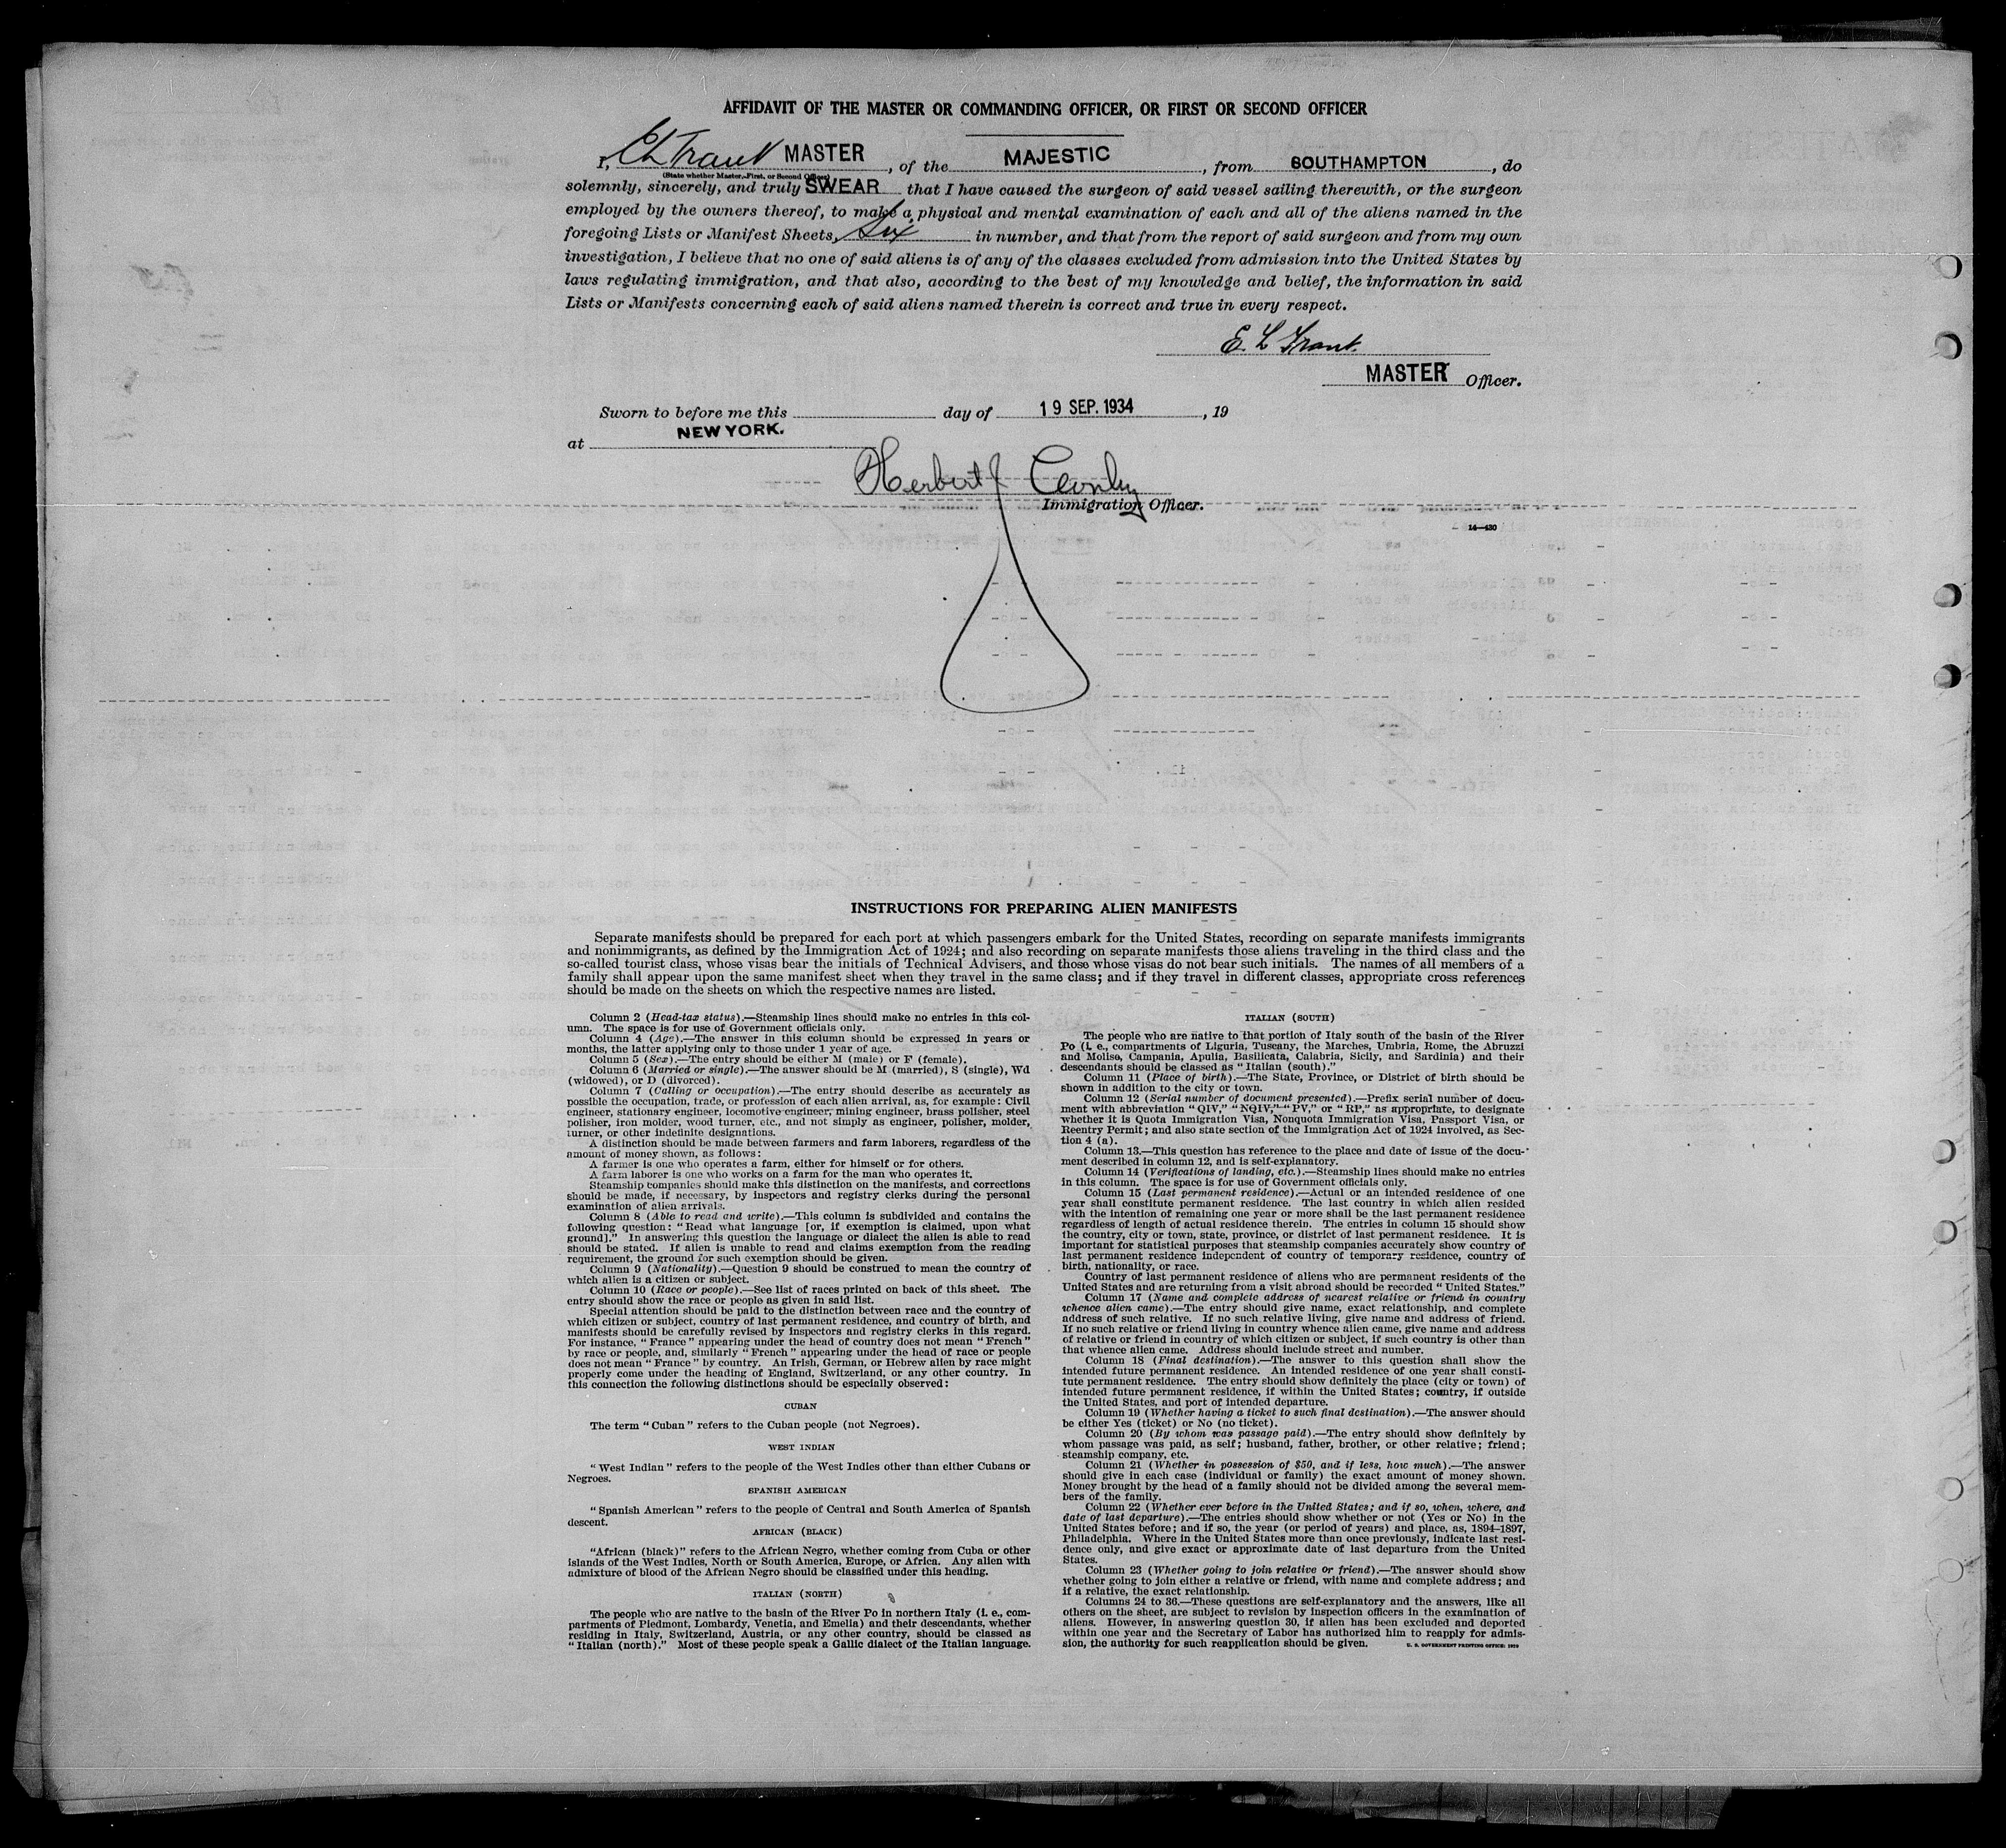 AFFIDAVIT OF THE MASTER OR COMMANDING OFFICER, OR FIRST OR SECOND OFFICER
I, E L Trant MASTER, of the MAJESTIC, from SOUTHAMPTON, do
(State whether Master, First, or Second Officer)
solemnly, sincerely, and truly SWEAR that I have caused the surgeon of said vessel sailing therewith, or the surgeon
employed by the owners thereof, to make a physical and mental examination of each and all of the aliens named in the
foregoing Lists or Manifest Sheets, Six in number, and that from the report of said surgeon and from my own
investigation, I believe that no one of said aliens is of any of the classes excluded from admission into the United States by
laws regulating immigration, and that also, according to the best of my knowledge and belief, the information in said
Lists or Manifests concerning each of said aliens named therein is correct and true in every respect.
E. L Trant.
MASTER Officer.
Sworn to before me this day of 19 SEP. 1934, 19
at NEW YORK.
Herbert J
Immigration Officer.
14—430
INSTRUCTIONS FOR PREPARING ALIEN MANIFESTS
Separate manifests should be prepared for each port at which passengers embark for the United States, recording on separate manifests immigrants
and nonimmigrants, as defined by the Immigration Act of 1924; and also recording on separate manifests those aliens traveling in the third class and the
so-called tourist class, whose visas bear the initials of Technical Advisers, and those whose visas do not bear such initials. The names of all members of a
family shall appear upon the same manifest sheet when they travel in the same class; and if they travel in different classes, appropriate cross references
should be made on the sheets on which the respective names are listed.
Column 2 (Head-tax status).—Steamship lines should make no entries in this col-
umn. The space is for use of Government officials only.
Column 4 (Age).—The answer in this column should be expressed in years or
months, the latter applying only to those under 1 year of age.
Column 5 (Sex).—The entry should be either M (male) or F (female).
Column 6 (Married or single).—The answer should be M (married), S (single), Wd
(widowed), or D (divorced).
Column 7 (Calling or occupation).—The entry should describe as accurately as
possible the occupation, trade, or profession of each alien arrival, as, for example: Civil
engineer, stationary engineer, locomotive engineer, mining engineer, brass polisher, steel
polisher, iron molder, wood turner, etc., and not simply as engineer, polisher, molder,
turner, or other indefinite designations.
A distinction should be made between farmers and farm laborers, regardless of the
amount of money shown, as follows:
A farmer is one who operates a farm, either for himself or for others.
A farm laborer is one who works on a farm for the man who operates it.
Steamship companies should make this distinction on the manifests, and corrections
should be made, if necessary, by inspectors and registry clerks during the personal
examination of alien arrivals.
Column 8 (Able to read and write).—This column is subdivided and contains the
following question: "Read what language [or, if exemption is claimed, upon what
ground]." In answering this question the language or dialect the alien is able to read
should be stated. If alien is unable to read and claims exemption from the reading
requirement, the ground for such exemption should be given.
Column 9 (Nationality).—Question 9 should be construed to mean the country of
which alien is a citizen or subject.
Column 10 (Race or people).—See list of races printed on back of this sheet. The
entry should show the race or people as given in said list.
Special attention should be paid to the distinction between race and the country of
which citizen or subject, country of last permanent residence, and country of birth, and
manifests should be carefully revised by inspectors and registry clerks in this regard.
For instance, "France" appearing under the head of country does not mean "French"
by race or people, and, similarly "French" appearing under the head of race or people
does not mean "France" by country. An Irish, German, or Hebrew alien by race might
properly come under the heading of England, Switzerland, or any other country. In
this connection the following distinctions should be especially observed:
CUBAN
The term "Cuban" refers to the Cuban people (not Negroes).
WEST INDIAN
"West Indian" refers to the people of the West Indies other than either Cubans or
Negroes.
SPANISH AMERICAN
"Spanish American" refers to the people of Central and South America of Spanish
descent.
AFRICAN (BLACK)
"African (black)" refers to the African Negro, whether coming from Cuba or other
islands of the West Indies, North or South America, Europe, or Africa. Any alien with
admixture of blood of the African Negro should be classified under this heading.
ITALIAN (NORTH)
The people who are native to the basin of the River Po in northern Italy (i. e., com-
partments of Piedmont, Lombardy, Venetia, and Emelia) and their descendants, whether
residing in Italy, Switzerland, Austria, or any other country, should be classed as
"Italian (north)." Most of these people speak a Gallic dialect of the Italian language.
ITALIAN (SOUTH)
The people who are native to that portion of Italy south of the basin of the River
Po (i. e., compartments of Liguria, Tuscany, the Marches, Umbria, Rome, the Abruzzi
and Molise, Campania, Apulia, Basilicata, Calabria, Sicily, and Sardinia) and their
descendants should be classed as "Italian (south)."
Column 11 (Place of birth).—The State, Province, or District of birth should be
shown in addition to the city or town.
Column 12 (Serial number of document presented).—Prefix serial number of docu-
ment with abbreviation "QIV," "NQIV," "PV," or "RP," as appropriate, to designate
whether it is Quota Immigration Visa, Nonquota Immigration Visa, Passport Visa, or
Reentry Permit; and also state section of the Immigration Act of 1924 involved, as Sec-
tion 4 (a).
Column 13.—This question has reference to the place and date of issue of the docu-
ment described in column 12, and is self-explanatory.
Column 14 (Verifications of landing, etc.).—Steamship lines should make no entries
in this column. The space is for use of Government officials only.
Column 15 (Last permanent residence).—Actual or an intended residence of one
year shall constitute permanent residence. The last country in which alien resided
with the intention of remaining one year or more shall be the last permanent residence
regardless of length of actual residence therein. The entries in column 15 should show
the country, city or town, state, province, or district of last permanent residence. It is
important for statistical purposes that steamship companies accurately show country of
last permanent residence independent of country of temporary residence, country of
birth, nationality, or race.
Country of last permanent residence of aliens who are permanent residents of the
United States and are returning from a visit abroad should be recorded "United States."
Column 17 (Name and complete address of nearest relative or friend in country
whence alien came).—The entry should give name, exact relationship, and complete
address of such relative. If no such relative living, give name and address of friend.
If no such relative or friend living in country whence alien came, give name and address
of relative or friend in country of which citizen or subject, if such country is other than
that whence alien came. Address should include street and number.
Column 18 (Final destination).—The answer to this question shall show the
intended future permanent residence. An intended residence of one year shall consti-
tute permanent residence. The entry should show definitely the place (city or town) of
intended future permanent residence, if within the United States; country, if outside
the United States, and port of intended departure.
Column 19 (Whether having a ticket to such final destination).—The answer should
be either Yes (ticket) or No (no ticket).
Column 20 (By whom was passage paid).—The entry should show definitely by
whom passage was paid, as self; husband, father, brother, or other relative; friend;
steamship company, etc.
Column 21 (Whether in possession of $50, and if less, how much).—The answer
should give in each case (individual or family) the exact amount of money shown.
Money brought by the head of a family should not be divided among the several mem-
bers of the family.
Column 22 (Whether ever before in the United States; and if so, when, where, and
date of last departure).—The entries should show whether or not (Yes or No) in the
United States before; and if so, the year (or period of years) and place, as, 1894–1897,
Philadelphia. Where in the United States more than once previously, indicate last resi-
dence only, and give exact or approximate date of last departure from the United
States.
Column 23 (Whether going to join relative or friend).—The answer should show
whether going to join either a relative or friend, with name and complete address; and
if a relative, the exact relationship.
Columns 24 to 36.—These questions are self-explanatory and the answers, like all
others on the sheet, are subject to revision by inspection officers in the examination of
aliens. However, in answering question 30, if alien has been excluded and deported
within one year and the Secretary of Labor has authorized him to reapply for admis-
sion, the authority for such reapplication should be given.
U. S. GOVERNMENT PRINTING OFFICE: